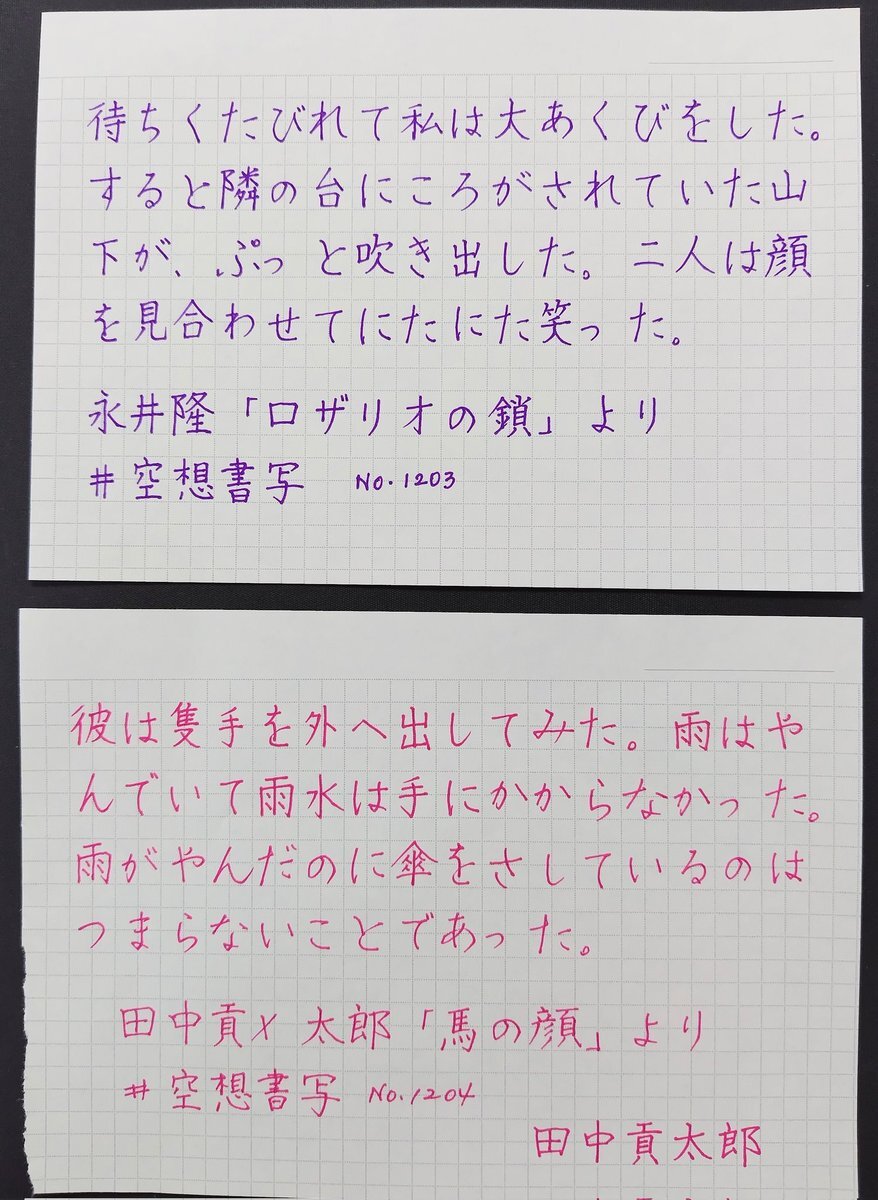 待ちくたびれて私は大あくびをした。
すると隣の台にころがされていた山
下が、ぷっと吹き出した。二人は顔
を見合わせてにたにた笑った。
永井隆「ロザリオの鎖」より
#空想書写 No.1203
彼は隻手を外へ出してみた。雨はや
んでいて雨水は手にかからなかった。
雨がやんだのに傘をさしているのは
つまらないことであった。
田中貢x 太郎「馬の顔」より
#空想書写 No.1204
田中貢太郎